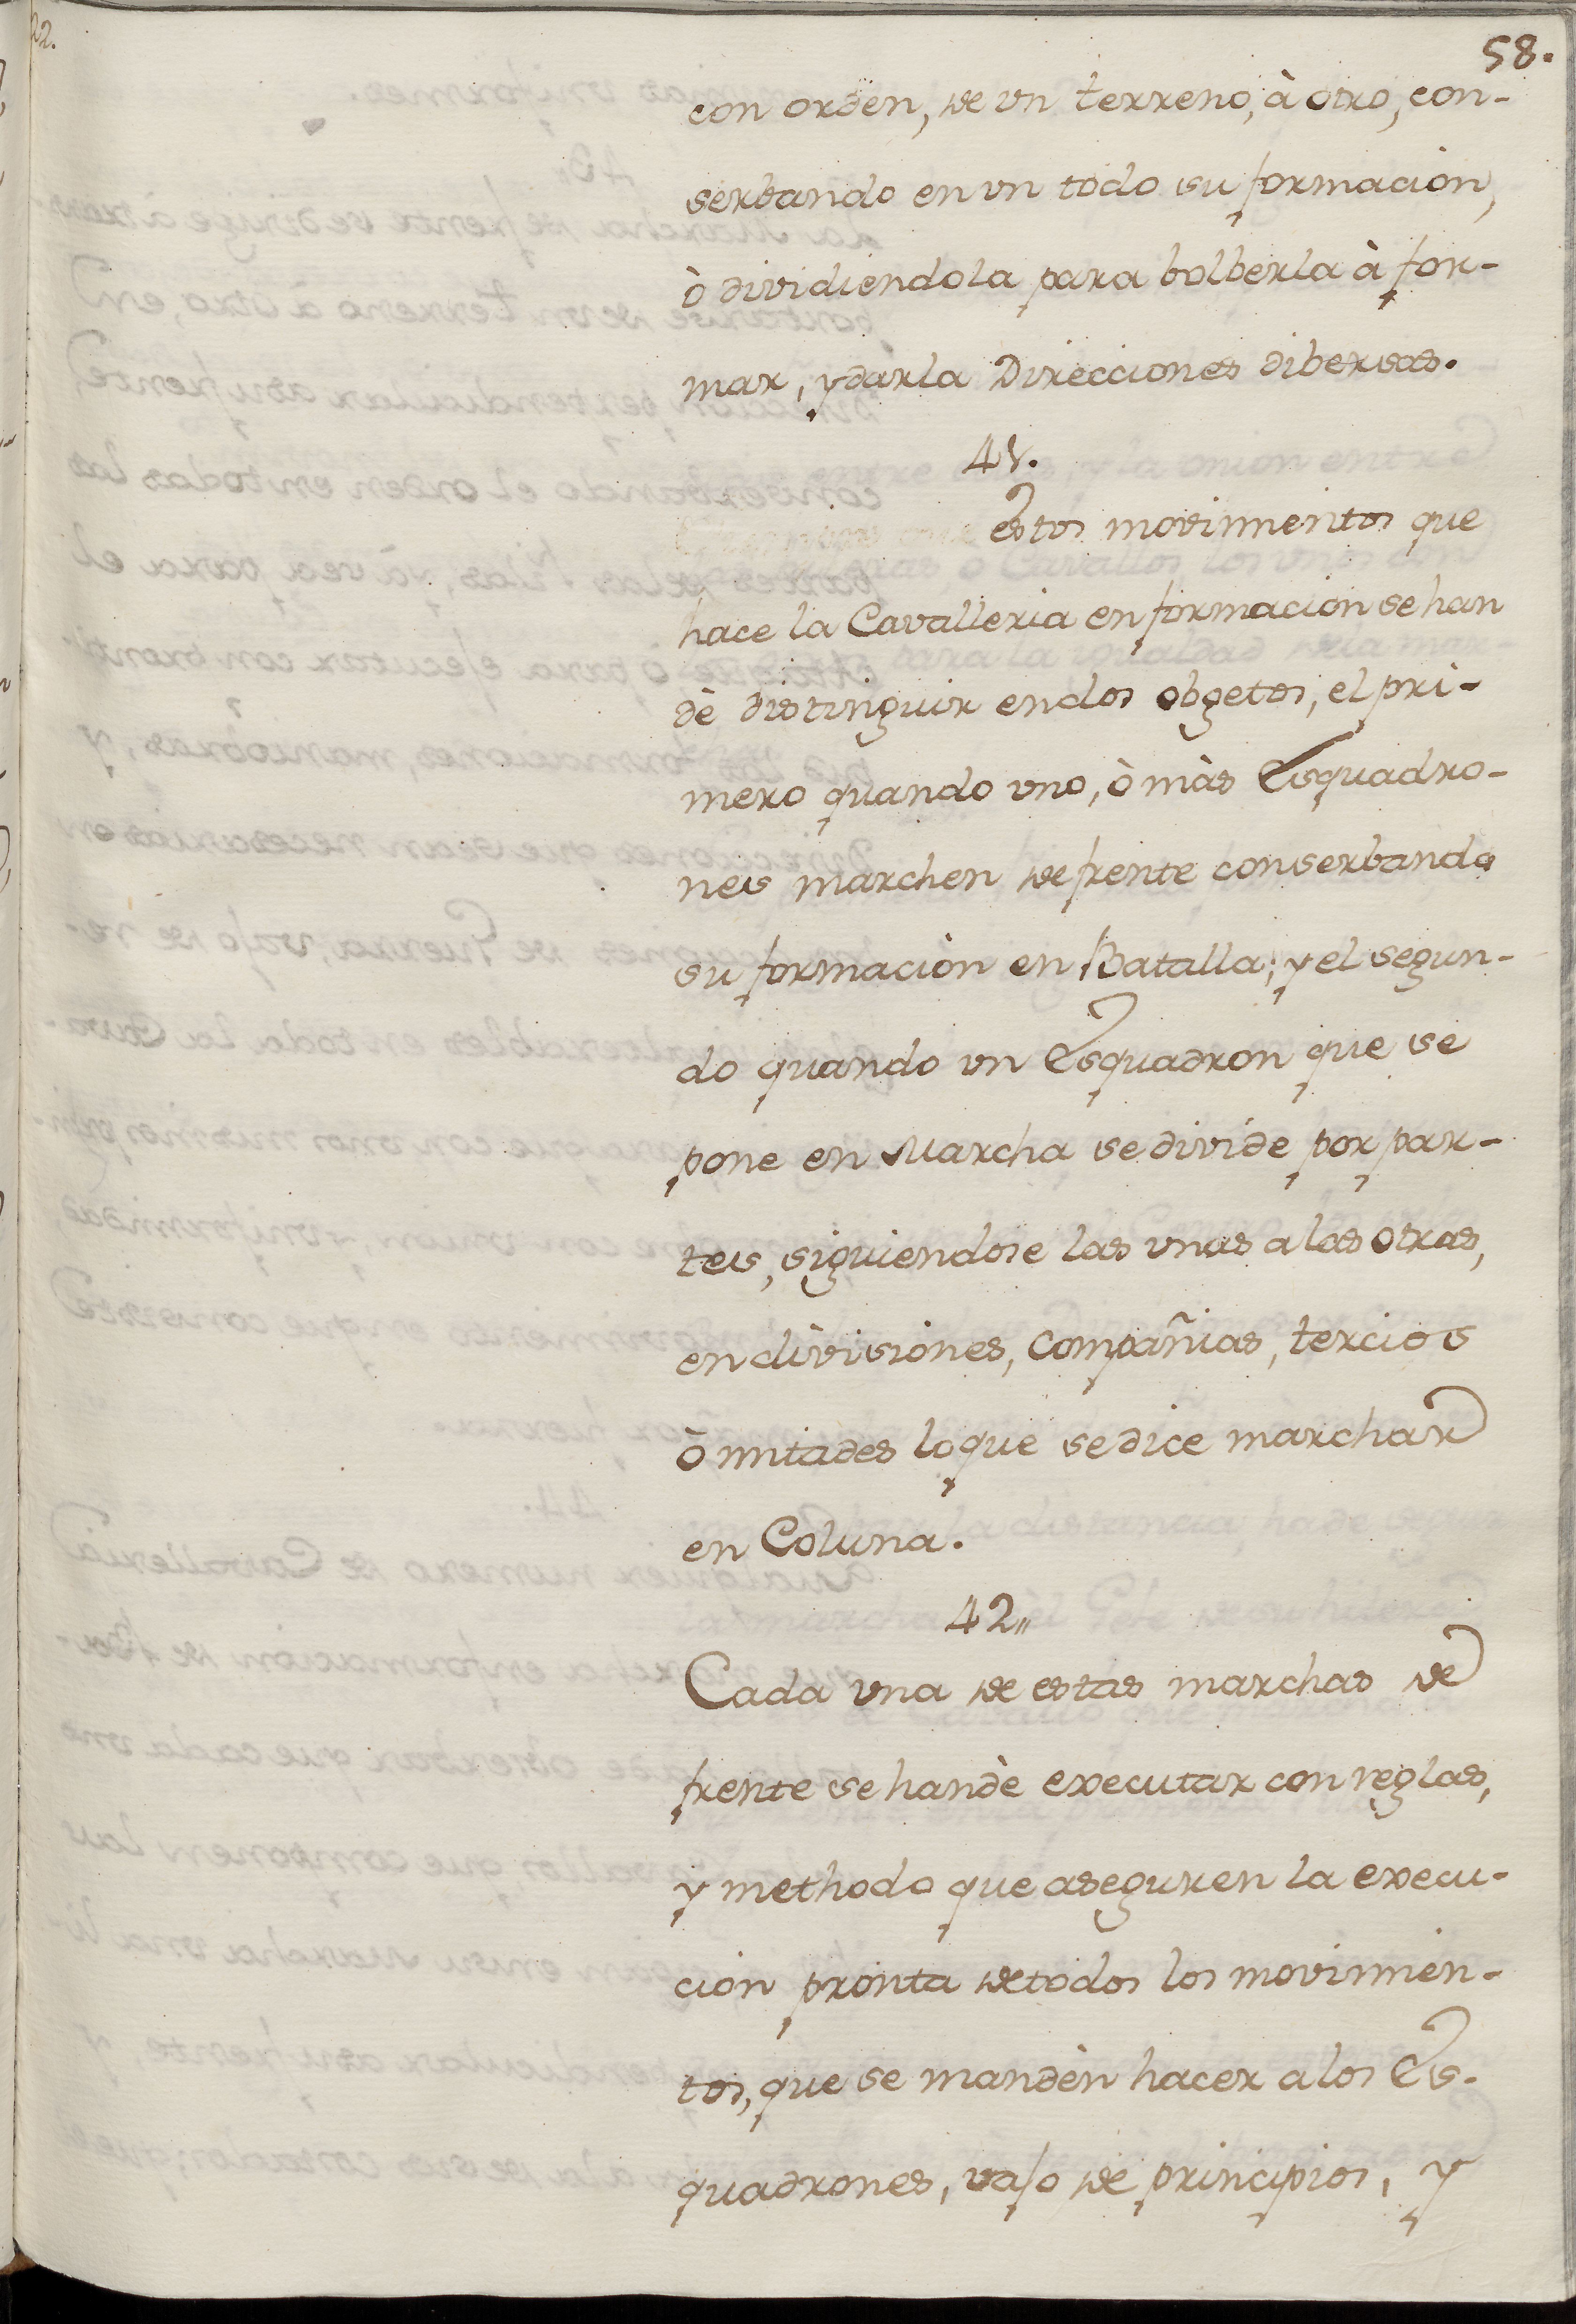 58.
con orden, de vn terreno, à otro, con-
serbando en vn todo su formacion,
ò dividiendola para bolberla à for-
mar, y darla Direcciones dibersas.
41.
estos movimientos que
hace la Cavalleria en formacion se han
dè distinguir en dos obgetos, el pri-
mero quando vno, ò màs Esquadro-
nes marchen de frente conserbando
su formaciòn en Batalla; y el segun-
do quando vn Esquadron que se
pone en Marcha se divide por par-
tes, siguiendose las vnas a las otras,
en divisiones, Compañias, tercios
ò mitades lo que se dice marchar
en Coluna.
42"
Cada vna de estas marchas de
frente se han dè executar con reglas,
y methodo que aseguren la execu-
cion pronta de todos los movimien-
tos, que se mandèn hacer a los Es-
quadrones, vajo de principios, y